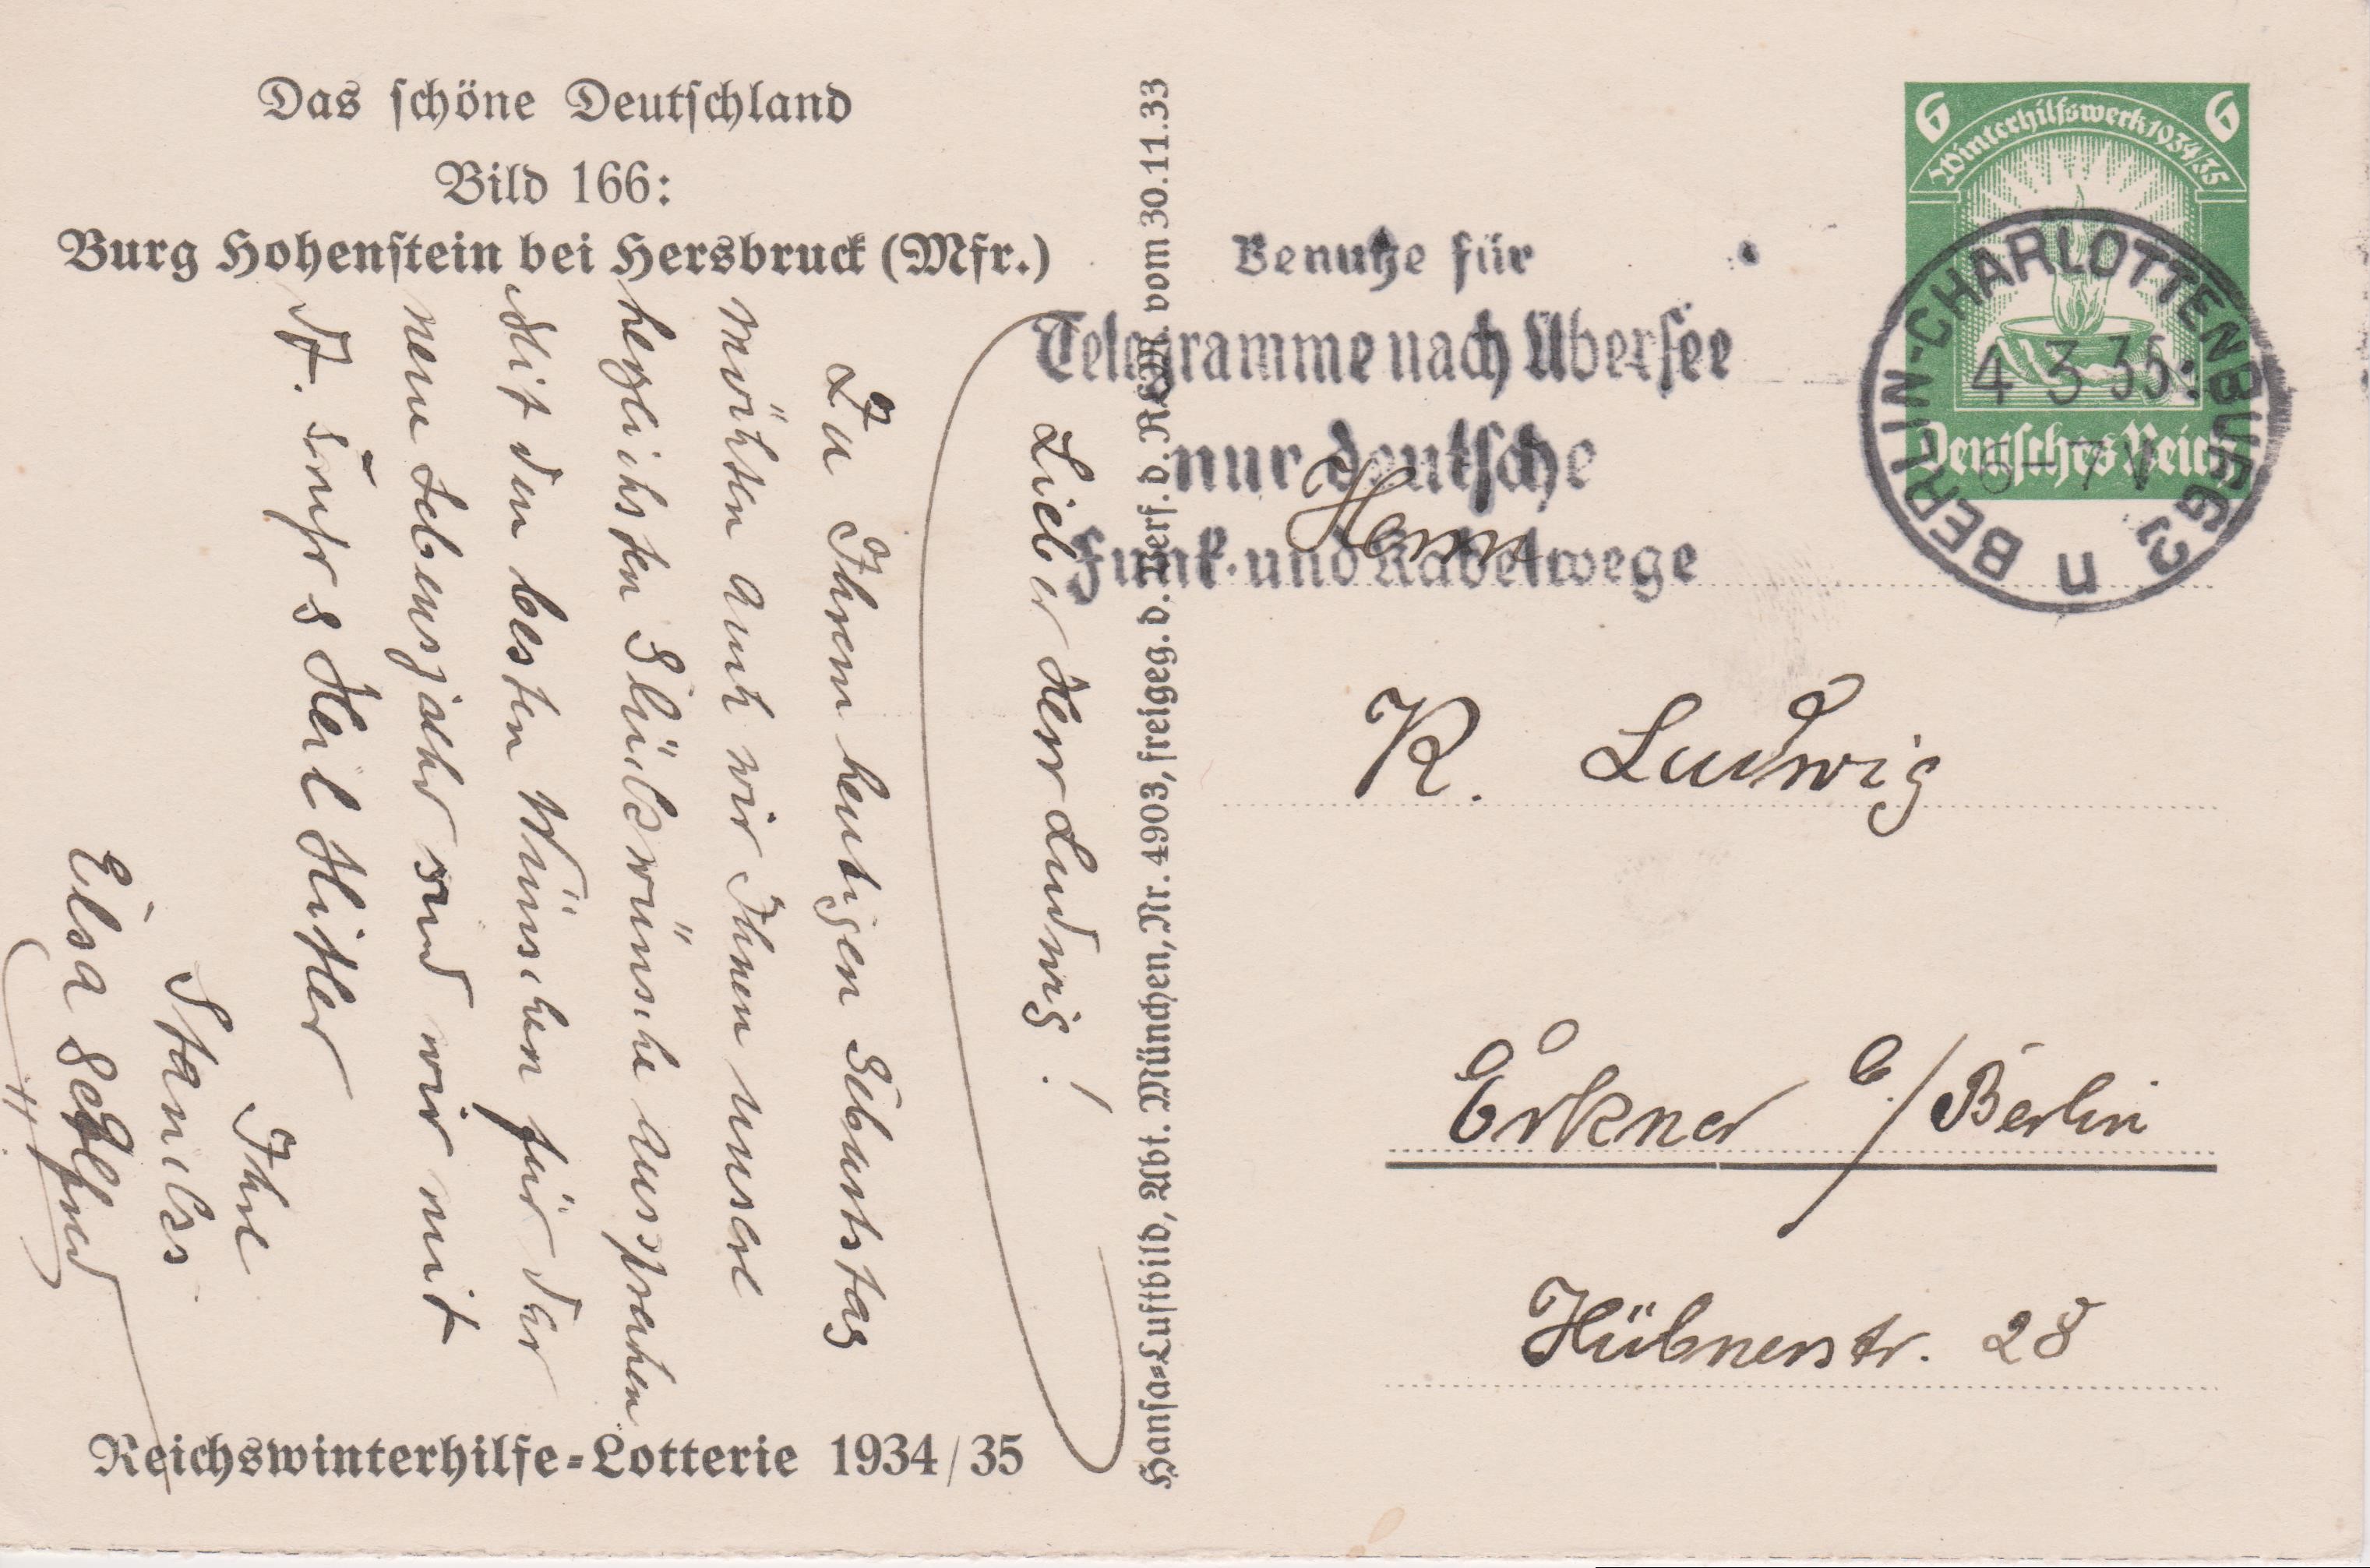 Das schöne Deutschland
Bild 166:
Burg Hohenstein bei Hersbruck (Mfr.)
Lieber Herr Ludwig!
Zu Ihrem heutigen Geburtstag
möchten auch wir Ihnen unsere
herzlichsten Glückwünsche aussprechen
Mit den besten Wünschen für das
neue Lebensjahr sind wir mit
Heil Hitler
Ihre
Elsa
Reichswinterhilfe-Lotterie 1934/35
Hansa-Luftbild, Abt. München, Nr. 4903, freigeg. d. Verf. d. RLM. vom 30.11.33
Benutze für
Telegramme nach Übersee
nur deutsche
Funk- und Kabelwege
6 6
Winterhilfswerk 1934/35
Deutsches Reich
BERLIN-CHARLOTTENBURG 2
4 3 35
6-7 V
n
Herrn
R. Ludwig
Erkner b/Berlin
Hübnerstr. 28